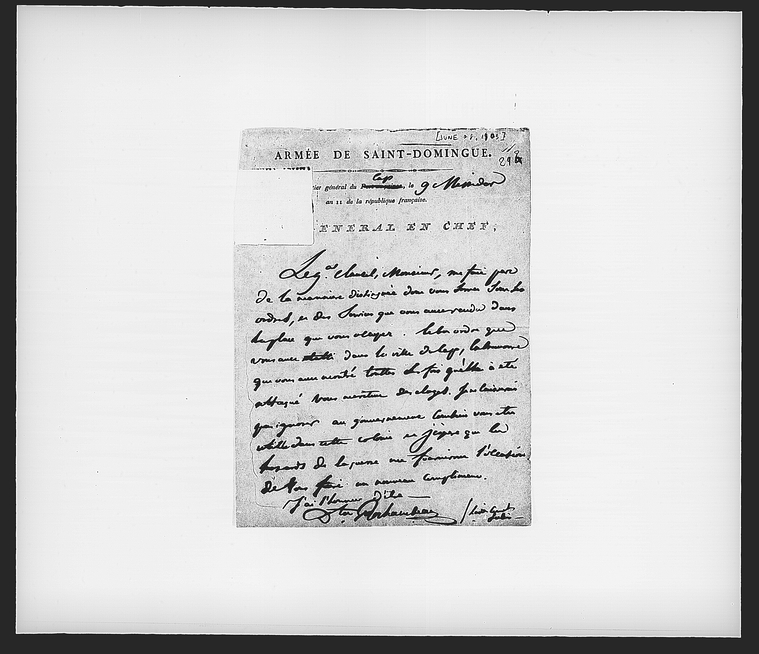 [JUNE 28, 1803]
ARMÉE DE SAINT-DOMINGUE.
tier général du Cap, le 9 Messidor
an 11 de la république française.
ÉNÉRAL EN CHEF,
Le gal Clausel, Monsieur, me fait part
de la maniere distinguée dont vous servez sous ses
ordres, et des services que vous avez rendu dans
la place que vous occupez. le bon ordre que
vous avez établi dans la ville du Cap, la bravoure
que vous avez montré toutes les fois qu'elle a été
attaqué vous méritent des éloges. Je ne laisserai
pas ignorer au gouvernement combien vous êtes
utile dans cette colonie et j'espere que les
hazards de la guerre me fournirons l'occasion
de vous faire un nouveau compliment.
J'ai l'honneur d'être
Dte Rochambeau